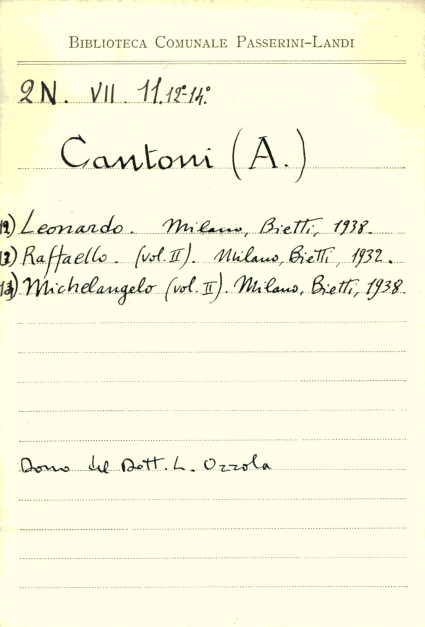 BIBLIOTECA COMUNALE PASSERINI-LANDI
2N. VII. 11.12º-14º
Cantoni (A.)
12) Leonardo. Milano, Bietti, 1938.
13) Raffaello. (vol. II). Milano, Bietti, 1932.
14) Michelangelo (vol. II). Milano, Bietti, 1938.
Dono del Dott. L. Ozzola